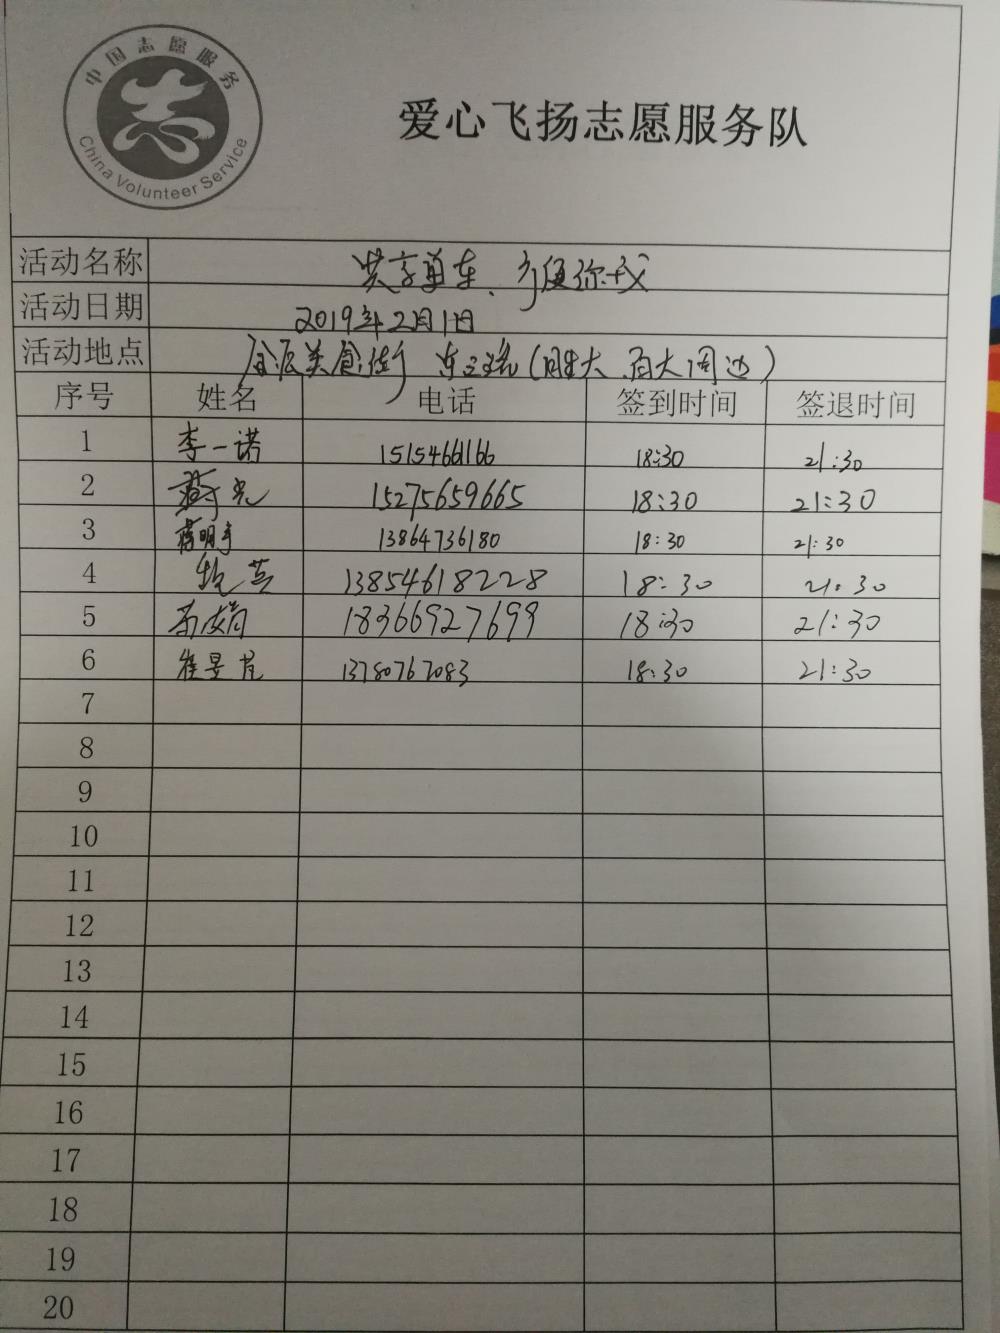 中国志愿服务
China Volunteer Service
爱心飞扬志愿服务队
活动名称 共享单车、方便你我
活动日期 2019年2月1日
活动地点 美食街 (胜大、百大周边)
序号 姓名 电话 签到时间 签退时间
1 李一诺 15154661166 18:30 21:30
2 15275659665 18:30 21:30
3 蒋明 13864736180 18:30 21:30
4 英 13854618228 18:30 21:30
5 18366927699 18:30 21:30
6 崔昱 13780767083 18:30 21:30
7
8
9
10
11
12
13
14
15
16
17
18
19
20